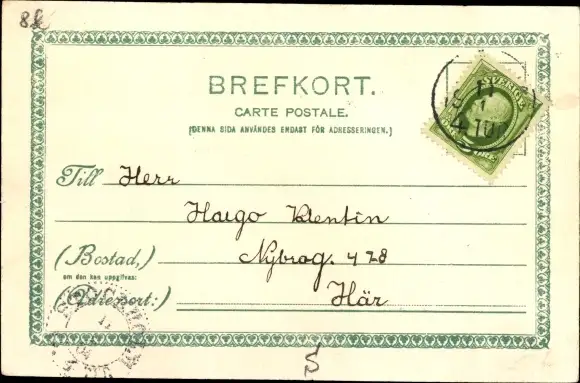 8
BREFKORT.
CARTE POSTALE.
(DENNA SIDA ANVÄNDES ENDAST FÖR ADRESSERINGEN.)
SVERIGE
11
4 TUR
Till Herr
Hugo Klentin
Nybrog. 478
(Bostad,)
om den kan uppgifvas:
(Adressort:) Här
S